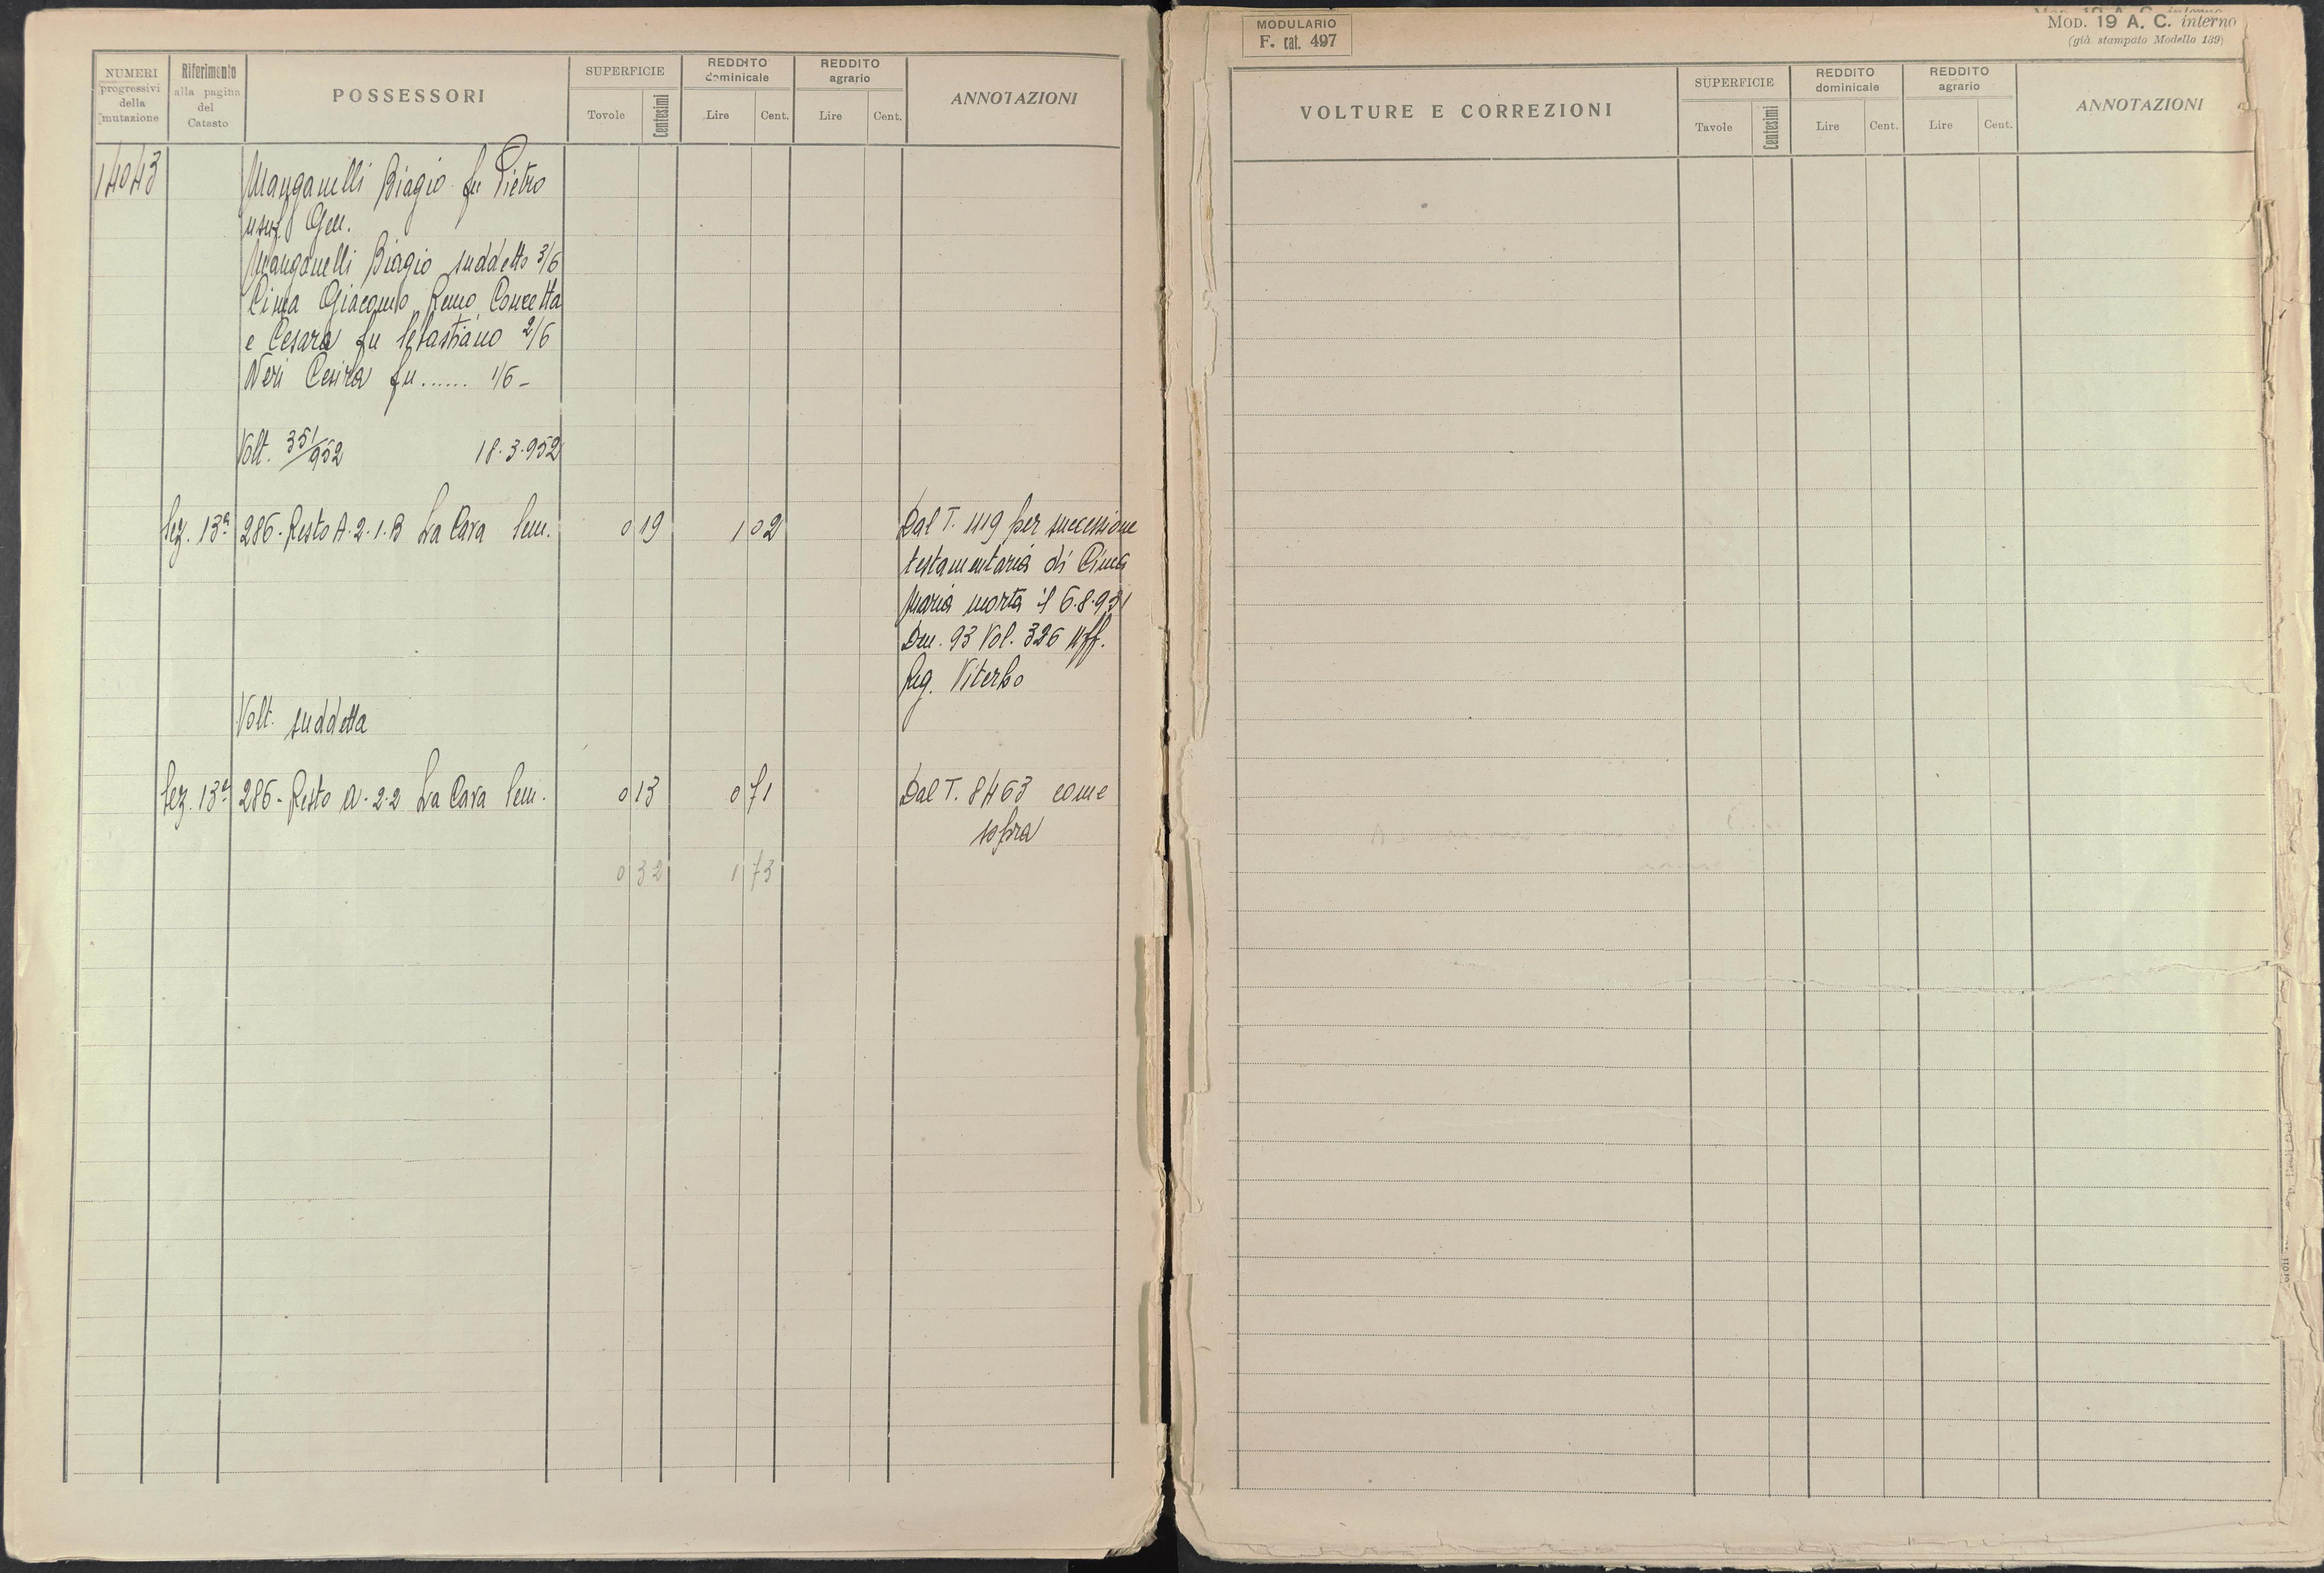 NUMERI
progressivi
della
mutazione
Riferimento
alla pagina
del
Catasto
POSSESSORI
SUPERFICIE
Tovole
Centesimi
REDDITO
dominicale
Lire
Cent.
REDDITO
agrario
Lire
Cent.
ANNOTAZIONI
14043
Manganelli Biagio fu Pietro
usuf. Gen.
Manganelli Biagio suddetto 3/6
Cima Giacomo Remo Concetta
e Cesara fu Sebastiano 2/6
Neri Cesira fu ...... 1/6 -
Volt. 351/952 18.3.952
Sez. 13ª 286 - Resto A.2.1.B La Cava Sem. 0 19 1 02 Dal T. 1119 per successione
testamentaria di Cima
Maria morta il 6.8.951
Den. 93 Vol. 326 Uff.
Reg. Viterbo
Volt. suddetta
Sez. 13ª 286 - Resto A.2.2 La Cava Sem. 0 13 0 71 Dal T. 8463 come
sopra
0 32 1 73
MODULARIO
F. cat. 497
Mod. 19 A. C. interno
(già stampato Modello 139)
VOLTURE E CORREZIONI
SUPERFICIE
Tavole
Centesimi
REDDITO
dominicale
Lire
Cent.
REDDITO
agrario
Lire
Cent.
ANNOTAZIONI